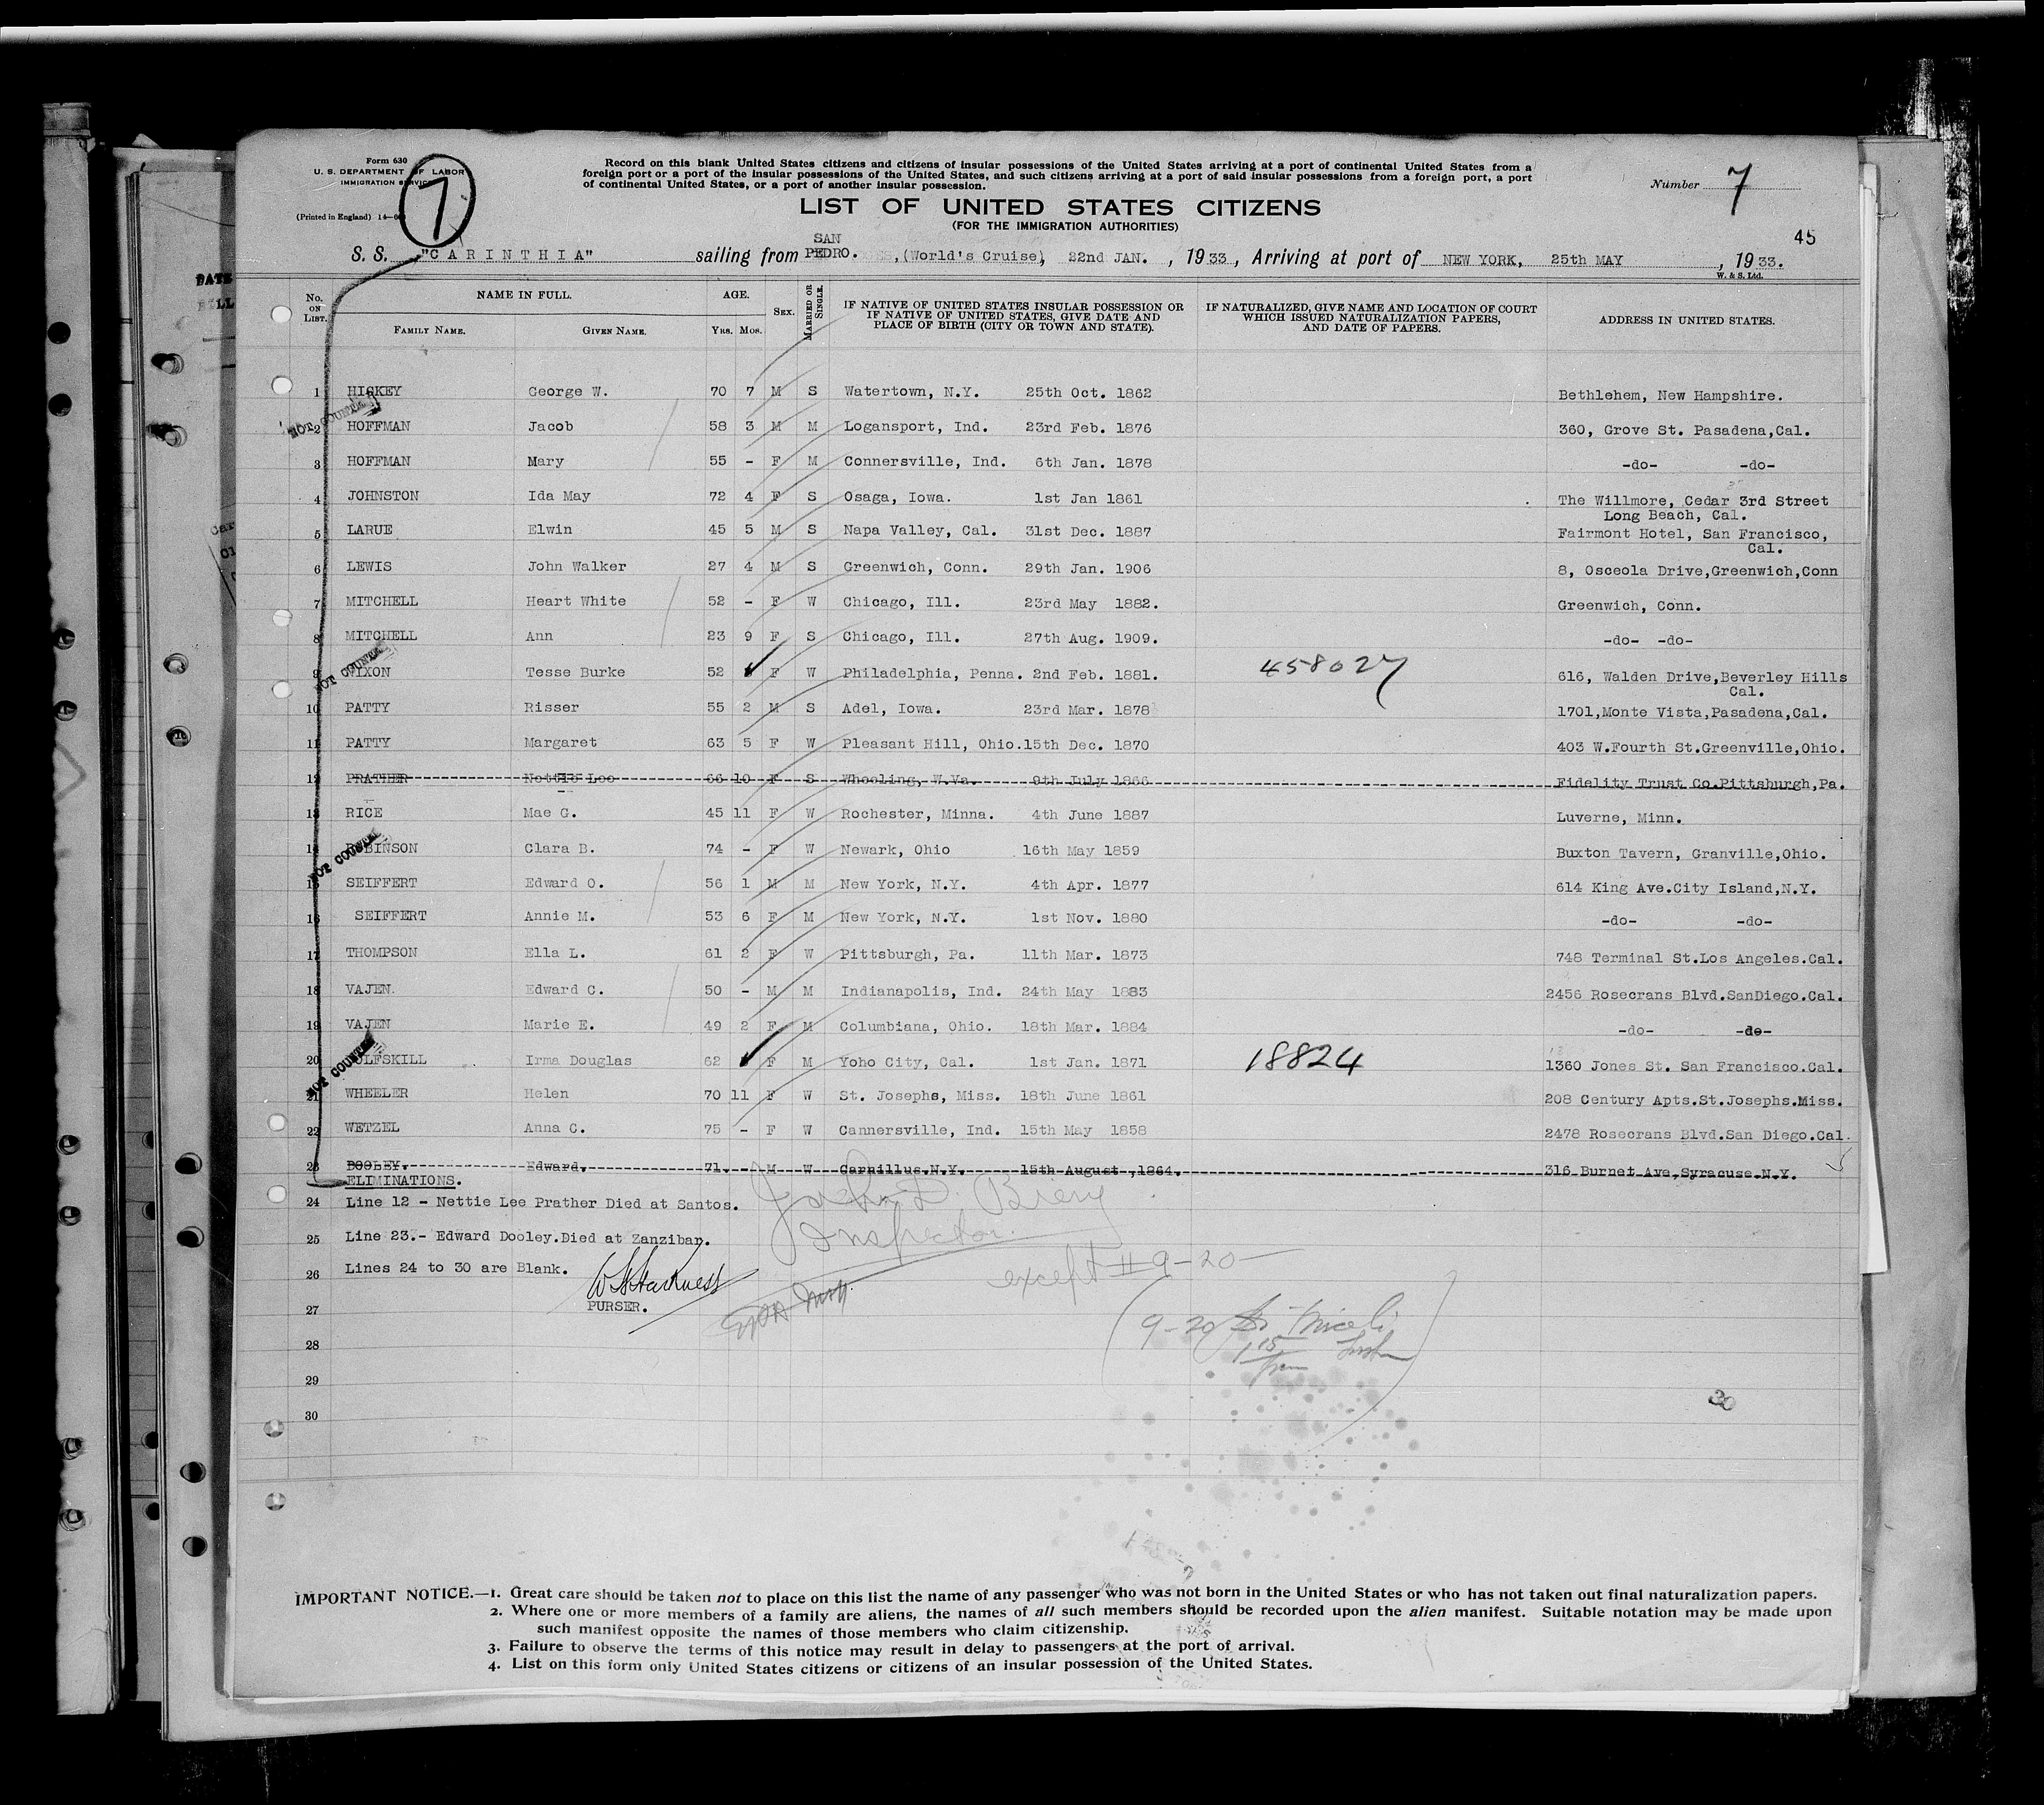 Form 630
U. S. DEPARTMENT OF LABOR
IMMIGRATION SERVICE
(Printed in England) 14—
7
Record on this blank United States citizens and citizens of insular possessions of the United States arriving at a port of continental United States from a
foreign port or a port of the insular possessions of the United States, and such citizens arriving at a port of said insular possessions from a foreign port, a port
of continental United States, or a port of another insular possession.
Number 7
LIST OF UNITED STATES CITIZENS
(FOR THE IMMIGRATION AUTHORITIES)
45
S. S. "CARINTHIA" sailing from SAN PEDRO. , (World's Cruise), 22nd JAN. , 1933, Arriving at port of NEW YORK, 25th MAY , 1933.
W. & S. Ltd.
No. ON LIST. NAME IN FULL. FAMILY NAME. GIVEN NAME. AGE. YRS. MOS. SEX. MARRIED OR SINGLE. IF NATIVE OF UNITED STATES INSULAR POSSESSION OR IF NATIVE OF UNITED STATES, GIVE DATE AND PLACE OF BIRTH (CITY OR TOWN AND STATE). IF NATURALIZED, GIVE NAME AND LOCATION OF COURT WHICH ISSUED NATURALIZATION PAPERS, AND DATE OF PAPERS. ADDRESS IN UNITED STATES.
1 HICKEY George W. 70 7 M S Watertown, N.Y. 25th Oct. 1862 Bethlehem, New Hampshire.
NOT COUNTED
2 HOFFMAN Jacob 58 3 M M Logansport, Ind. 23rd Feb. 1876 360, Grove St. Pasadena,Cal.
3 HOFFMAN Mary 55 - F M Connersville, Ind. 6th Jan. 1878 -do- -do-
4 JOHNSTON Ida May 72 4 F S Osaga, Iowa. 1st Jan 1861 The Willmore, Cedar 3rd Street
Long Beach, Cal.
5 LARUE Elwin 45 5 M S Napa Valley, Cal. 31st Dec. 1887 Fairmont Hotel, San Francisco,
Cal.
6 LEWIS John Walker 27 4 M S Greenwich, Conn. 29th Jan. 1906 8, Osceola Drive,Greenwich,Conn
7 MITCHELL Heart White 52 - F W Chicago, Ill. 23rd May 1882. Greenwich, Conn.
8 MITCHELL Ann 23 9 F S Chicago, Ill. 27th Aug. 1909. -do- -do-
NOT COUNTED
9 NIXON Tesse Burke 52 F W Philadelphia, Penna. 2nd Feb. 1881. 458027 616, Walden Drive,Beverley Hills
Cal.
10 PATTY Risser 55 2 M S Adel, Iowa. 23rd Mar. 1878 1701,Monte Vista,Pasadena,Cal.
11 PATTY Margaret 63 5 F W Pleasant Hill, Ohio.15th Dec. 1870 403 W.Fourth St.Greenville,Ohio.
12 PRATHER Nettie Lee 66 10 F S Wheeling, W.Va. 9th July 1866 Fidelity Trust Co.Pittsburgh,Pa.
13 RICE Mae G. 45 11 F W Rochester, Minna. 4th June 1887 Luverne, Minn.
NOT COUNTED
14 ROBINSON Clara B. 74 - F W Newark, Ohio 16th May 1859 Buxton Tavern, Granville,Ohio.
15 SEIFFERT Edward O. 56 1 M M New York, N.Y. 4th Apr. 1877 614 King Ave.City Island,N.Y.
16 SEIFFERT Annie M. 53 6 F M New York, N.Y. 1st Nov. 1880 -do- -do-
17 THOMPSON Ella L. 61 2 F W Pittsburgh, Pa. 11th Mar. 1873 748 Terminal St.Los Angeles.Cal.
18 VAJEN. Edward C. 50 - M M Indianapolis, Ind. 24th May 1883 2456 Rosecrans Blvd.SanDiego.Cal.
19 VAJEN Marie E. 49 2 F M Columbiana, Ohio. 18th Mar. 1884 -do- -do-
NOT COUNTED
20 WULFSKILL Irma Douglas 62 F M Yoho City, Cal. 1st Jan. 1871 18824 1360 Jones St. San Francisco.Cal.
21 WHEELER Helen 70 11 F W St. Josephs, Miss. 18th June 1861 208 Century Apts.St.Josephs.Miss.
22 WETZEL Anna C. 75 - F W Cannersville, Ind. 15th May 1858 2478 Rosecrans Blvd.San Diego.Cal.
23 DOOLEY. Edward. 71. - M W Camillus.N.Y. 15th August ,1864. 316 Burnet Ave,Syracuse.N.Y.
ELIMINATIONS.
24 Line 12 - Nettie Lee Prather Died at Santos.
John D. Biery
Inspector.
25 Line 23.- Edward Dooley.Died at Zanzibar.
26 Lines 24 to 30 are Blank.
except # 9-20
W Harkness
PURSER.
27
9-20
28
29
30
30
IMPORTANT NOTICE.—1. Great care should be taken not to place on this list the name of any passenger who was not born in the United States or who has not taken out final naturalization papers.
2. Where one or more members of a family are aliens, the names of all such members should be recorded upon the alien manifest. Suitable notation may be made upon
such manifest opposite the names of those members who claim citizenship.
3. Failure to observe the terms of this notice may result in delay to passengers at the port of arrival.
4. List on this form only United States citizens or citizens of an insular possession of the United States.